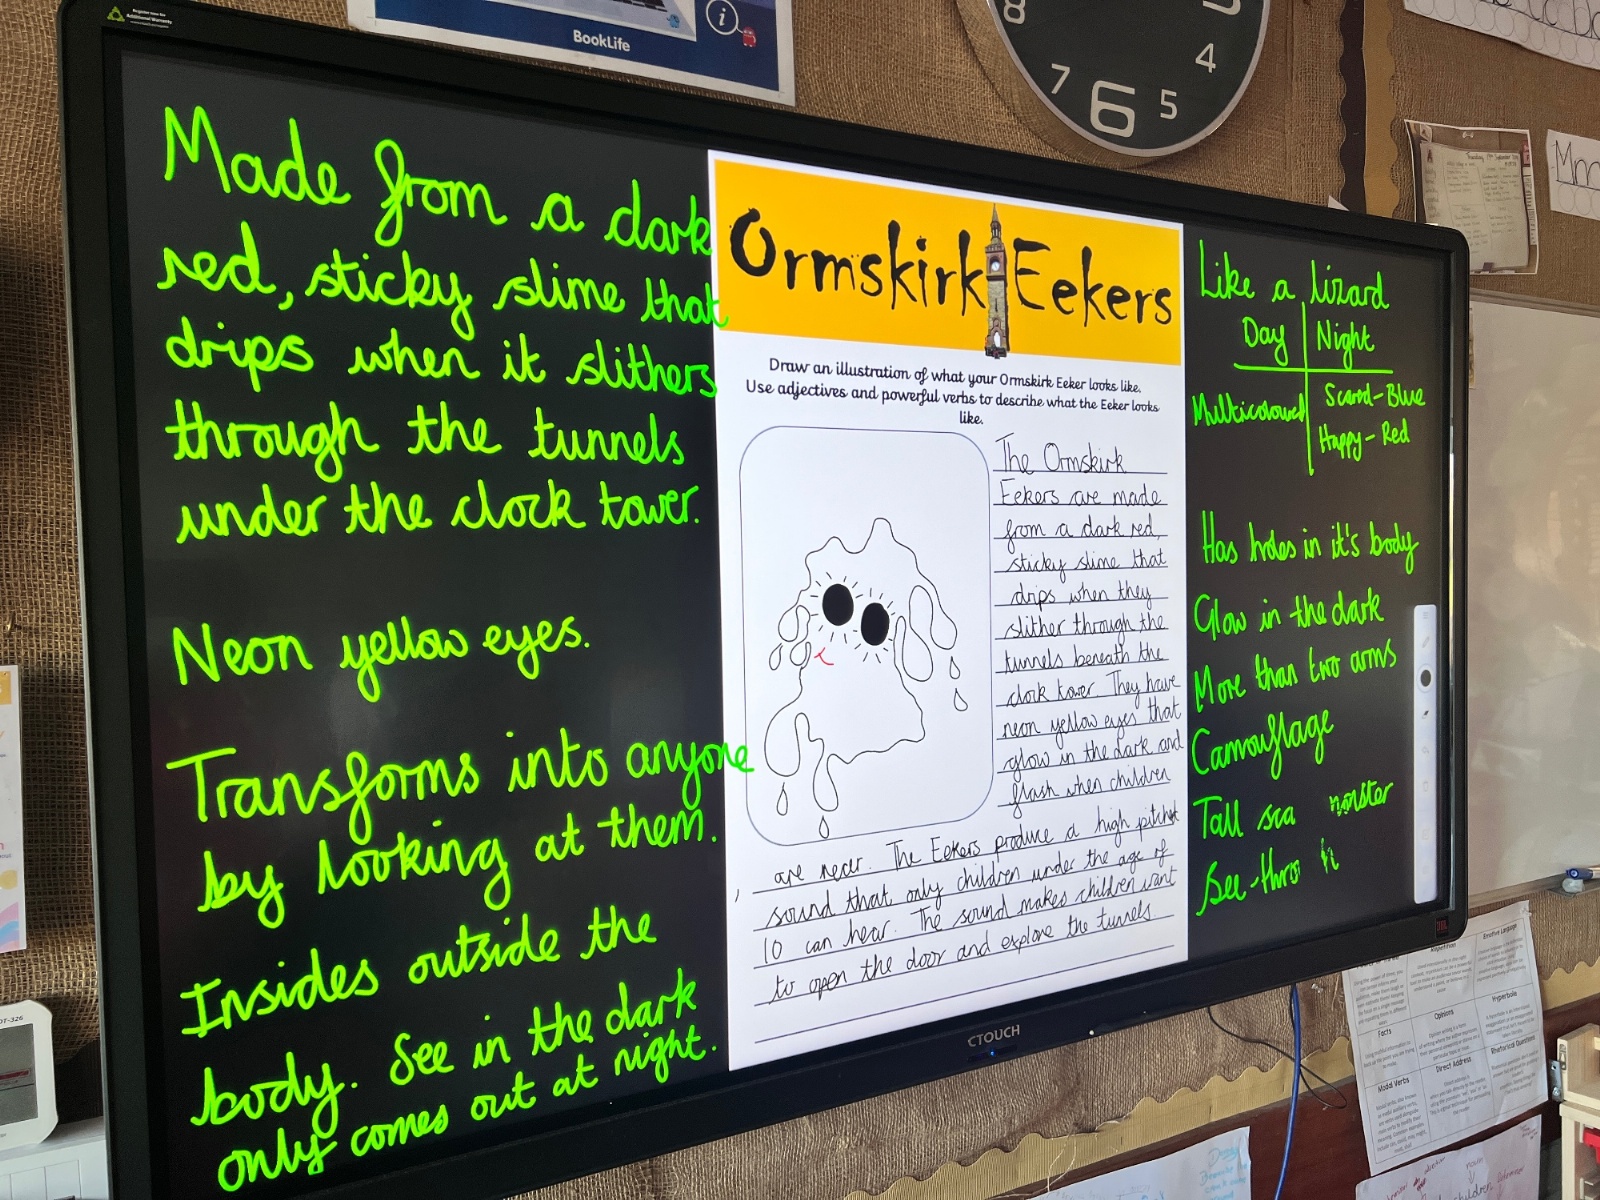 BookLife
8
7
6
5
4
Made from a dark
red, sticky slime that
drips when it slithers
through the tunnels
under the clock tower.
Neon yellow eyes.
Transforms into anyone
by looking at them.
Insides outside the
body. See in the dark
only comes out at night.
Ormskirk Eekers
Draw an illustration of what your Ormskirk Eeker looks like.
Use adjectives and powerful verbs to describe what the Eeker looks
like.
The Ormskirk
Eekers are made
from a dark red,
sticky slime that
drips when they
slither through the
tunnels beneath the
clock tower. They have
neon yellow eyes that
glow in the dark and
flash when children
are near. The Eekers produce a high pitched
sound that only children under the age of
10 can hear. The sound makes children want
to open the door and explore the tunnels
Like a lizard
Day Night
Multicoloured Scared - Blue
Happy - Red
Has holes in it's body
Glow in the dark
More than two arms
Camouflage
Tall sea monster
See-thro
CTOUCH
JBL
Repetition
Emotive Language
Facts
Opinions
Hyperbole
Modal Verbs
Direct Address
Rhetorical Questions